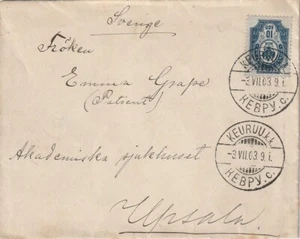 Sverige
Fröken
Emma Grape
(Patient)
Akademiska sjukhuset
Upsala.
10
KEURUU.K.
-3.VII.03 9 i.
КЕВРУ.С.
KEURUU.K.
-3.VII.03 9 i.
КЕВРУ.С.